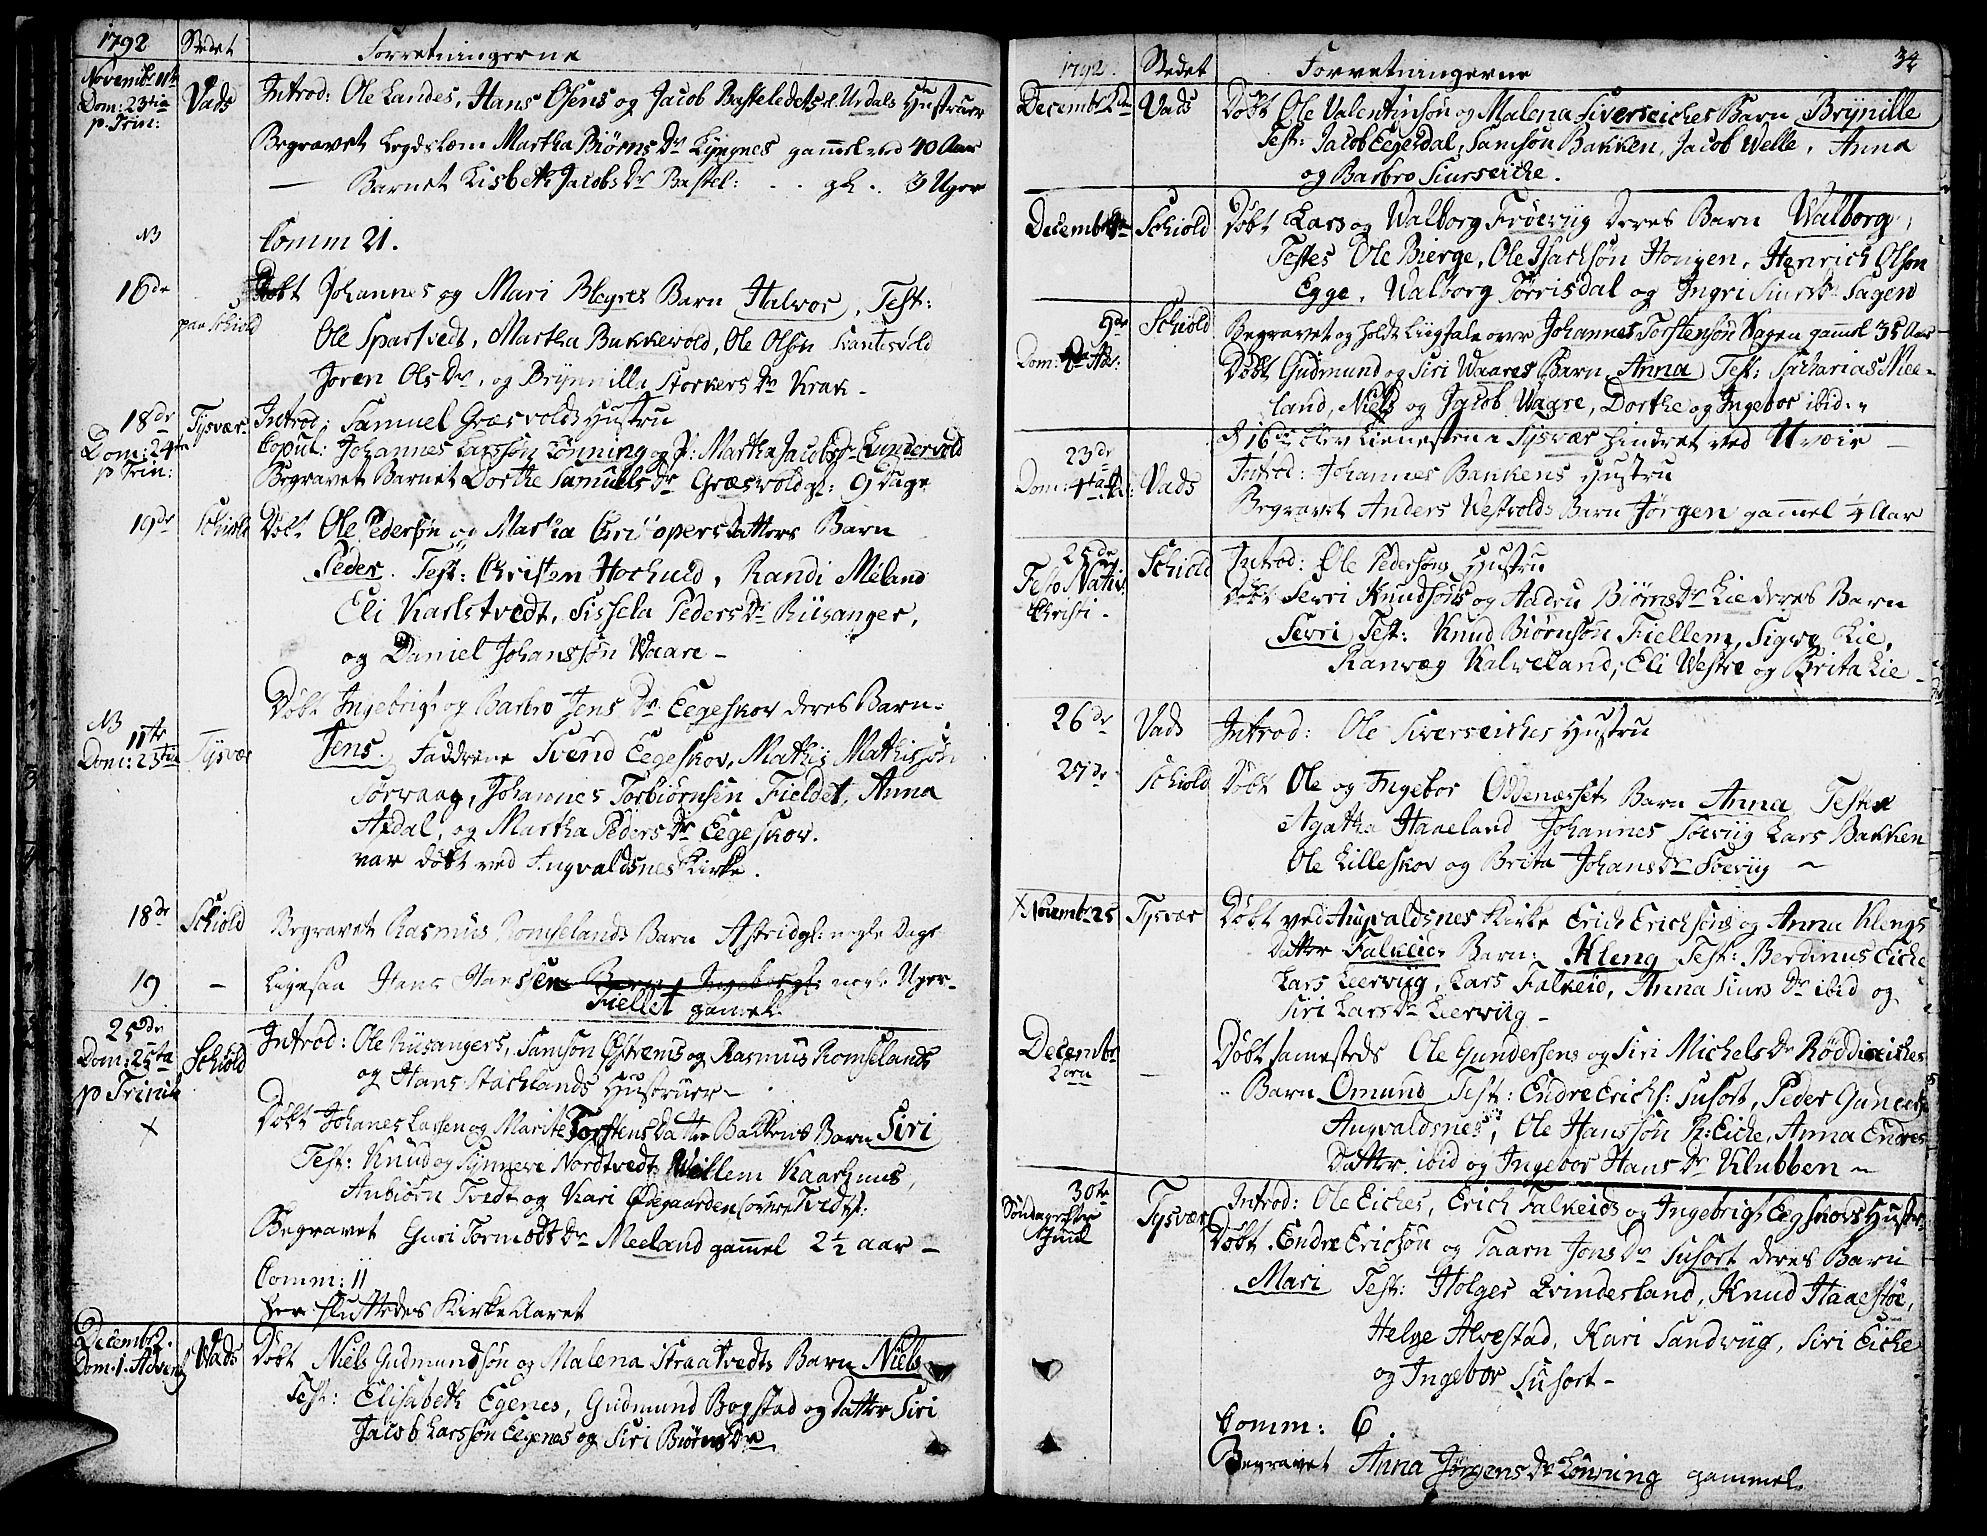 1792 Stedet Forretningerne
Novembr 11te Dom: 23tia p. Trin: Vads Introd: Ole Landes, Hans Osens og Jacob Basteledets Urdals Hustruer
Begravet Legdslem Martha Biørns Dr Lyngnes gammel ved 40 Aar
— Barnet Lisbeth Jacobs Dr Bastel: gl. 3 Uger
NB Comm 21.
16de paa Schiold Døbt Johannes og Mari Blegres Barn Halvor, Test:
Ole Spartvedt, Martha Bukkevold, Ole Olsön
Joren Ols Dr, og Brynnilla Storkers Dr Krak
18de Dom: 24 p Trin: Tysvær Introd: Samuel Græsvolds Hustru
Copul: Johannes Larssön Lönning og P: Martha Jacobs Dr Lundervold
Begravet Barnet Dorthe Samuels Dr Græsvold gl: 9 Dage
19de Schiold Døbt Ole Pedersön og Martha Christophersdatters Barn
Peder. Test: Christen Hoehuld, Randi Meland
Eli Karlstvedt, Sissela Peders Dr Riisanger,
og Daniel Johanssön Waare
Døbt Ingebrigt og Barbro Jens Dr Eegeskov deres Barn
NB 11te Dom: 23tia Tysvær Jens. Faddrene Svend Eegeskov, Mathis Mathissön
Sörvaag, Johannes Torbiörnsen Fieldet, Anna
Apdal, og Martha Peders Dr Eegeskov.
var döbt ved Augvaldsnes Kirke.
18de Schiold Begravet Rasmus Romselands Barn Astrid gl: nogle Dage
19 — Ligesaa Hans Hansen nogle Uger
Fiellet gammel
25de Dom: 25ta p Trinit Schiold Introd: Ole Riisangers, Samson Østrems og Rasmus Romselands
og Hans Stachlands Hustruer
× Døbt Johanes Lassen og Marite Torstens Datter Bakkens Barn Siri
Test: Knud og Synneve Nordtvedt, Willem Kaarhuus,
Anbiörn Tvedt og Kari Ødegaarden
Begravet Guri Tormodt Dr Meeland gammel 2½ aar
Comm: 11
her sluttedes Kirke Aaret
Decembr 2. Dom. 1. Advent Vads Døbt Niels Gudmundsön og Malena Straatvedts Barn Niels
Test: Elisabeth Egenes, Gudmund Bogstad og Datter Siri
Jacob Larssön Eegenes og Siri Biørns Dr
1792 Stedet Forretningerne 34
Decembr 2de Vads Døbt Ole Valentinsön og Malena Siverseiches Barn Brynille
Test: Jacob Eegesdal, Samson Bakken, Jacob Welle, Anna
og Barbro Siurseiche.
Decembr Schiold Døbt Lars og Walborg Fröevig deres Barn Walborg,
Testes Ole Bierge, Ole Isachsön Hongen, Henrich Olson
Egge, Walborg Törrisdal og Ingri Siurs Dr Sagen
9de Dom: 2da Adv: Schiold Begravet og holdt Liigtale over Johannes Torstensön Sagen gaml 35 Aar
Døbt Gudmund og Siri Waares Barn Anna Test: Sacharias Mee-
land, Niels og Jacob Waare, Dorthe og Ingebor ibid:
d 16de blev Tienesten i Tysvær hindret ved Uveir
23de Dom: 4ta Adv: Vads Introd: Johannes Bakkens Hustru
Begravet Anders Westvolds Barn Jörgen gammel ¼ Aar
25de Festo Nativit Christi Schiold Introd: Ole Pedersöns Hustru
Døbt Sevri Knudsöns og Aadru Biørns Dr Lie deres Barn
Sevri Test: Knud Biørnsön Fiellem, Sigwg Lie,
Ranvæg Kalveland, Eli Westre og Brita Lie
26de Vads Introd: Ole Siverseiches Hustru
27de Schiold Døbt Ole og Ingebor Oddenæssets Barn Anna Testes
Agatha Haaeland Johannes Soeviig Lars Bakken
Ole Lilleskov og Brita Johans Dr Soeviig
× Novembr 25 Tysvær Døbt ved Augvaldsnes Kirke Erich Erichsöns og Anna Klengs
Datter Falkeies Barn: Kleng Test: Berdinus Eiche
Lars Leerviig, Lars Falkeid, Anna Siurs Dr ibid og
Siri Lars Dr Leerviig
Decembr 2den — Døbt samesteds Ole Gundersens og Siri Michels Dr Röddseiches
Barn Omund Test: Endre Erichs: Susort, Peder Gunders
Augvaldsnes, Ole Hanssön R:Eiche, Anna Endres
Datter ibid og Ingebor Hans Dr Klubben
30te Söndag efter Juul Tysvær Introd: Ole Eiches, Erich Falkeids og Ingebrigt Eegskovs Hustr:
Døbt Endre Ericsön og Taarn Jons Dr Susort deres Barn
Mari Test: Holger Qvindesland, Knud Haaestöe,
Helge Alvestad, Kari Sandviig, Siri Eiche
og Ingebor Susort
Comm: 6.
Begravet Anna Jörgens Dr Lönning gammel